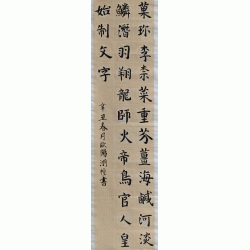 菓珍李柰菜重芥薑海鹹河淡
鱗潛羽翔龍師火帝鳥官人皇
始制文字
辛丑春月歐陽書